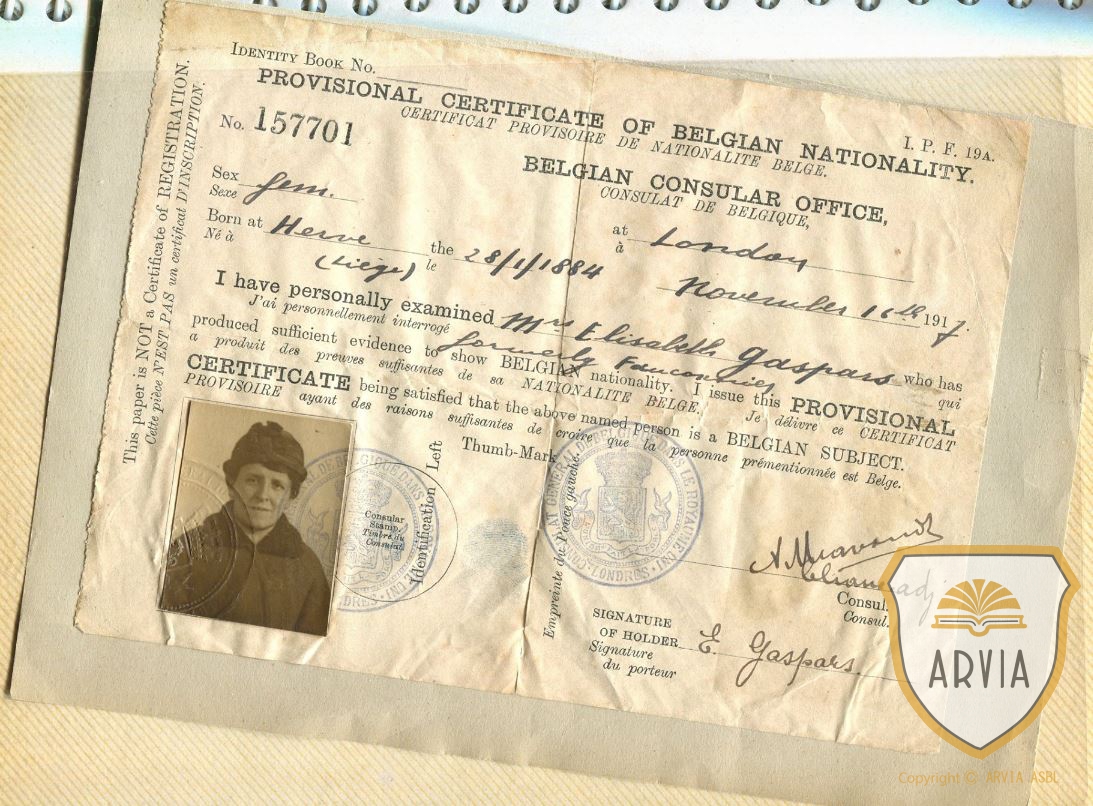 IDENTITY BOOK NO.
PROVISIONAL CERTIFICATE OF BELGIAN NATIONALITY.
CERTIFICAT PROVISOIRE DE NATIONALITE BELGE.
I. P. F. 19A.
No. 157701
BELGIAN CONSULAR OFFICE,
CONSULAT DE BELGIQUE,
Sex fem.
Sexe
at London
à
Born at Herve the 28/1/1884
Né à (Liége) le
November 16th 1917.
I have personally examined Mrs Elisabeth Gaspars who has
J'ai personnellement interrogé formerly Fauconnier qui
produced sufficient evidence to show BELGIAN nationality. I issue this PROVISIONAL
a produit des preuves suffisantes de sa NATIONALITE BELGE, Je délivre ce CERTIFICAT
CERTIFICATE being satisfied that the above named person is a BELGIAN SUBJECT.
PROVISOIRE ayant des raisons suffisantes de croire que la personne prémentionnée est Belge.
This paper is NOT a Certificate of REGISTRATION.
Cette pièce N'EST PAS un certificat D'INSCRIPTION.
Consular
Stamp.
Timbre du
Consulat
Identification
Left Thumb-Mark
Empreinte du Pouce gauche.
CONSULAT GENERAL DE BELGIQUE DANS LE ROYAUME UNI
LONDRES
Consul.
Consul.
SIGNATURE
OF HOLDER E. Gaspars.
Signature
du porteur
ARVIA
Copyright © ARVIA ASBL